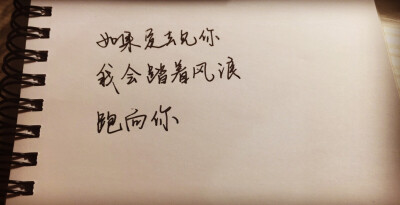 如果要去见你
我会踏着风浪
跑向你